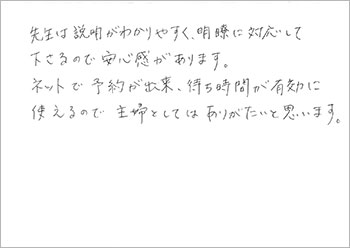 先生は説明がわかりやすく、明瞭に対応して
下さるので安心感があります。
ネットで予約が出来、待ち時間が有効に
使えるので主婦としてはありがたいと思います。